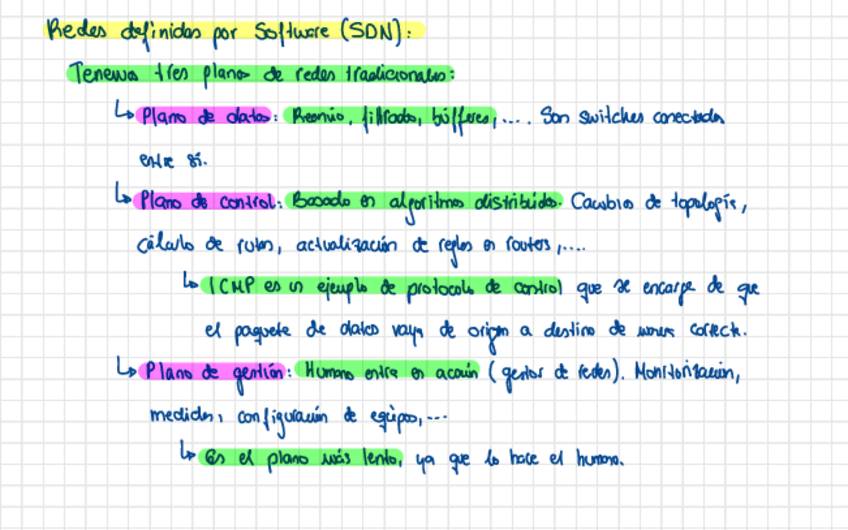 Redes definidas por Software (SDN):
Tenemos tres planos de redes tradicionales:
↳ Plano de datos: Reenvío, filtrado, búfferes,.... Son switches conectados
entre sí.
↳ Plano de control: Basado en algoritmos distribuidos. Cambios de topología,
cálculo de rutas, actualización de reglas en routers,....
↳ ICMP es un ejemplo de protocolo de control que se encarga de que
el paquete de datos vaya de origen a destino de manera correct.
↳ Plano de gestión: Humano entra en acción (gestor de redes). Monitorización,
medidas, configuración de equipos,...
↳ Es el plano más lento, ya que lo hace el humano.